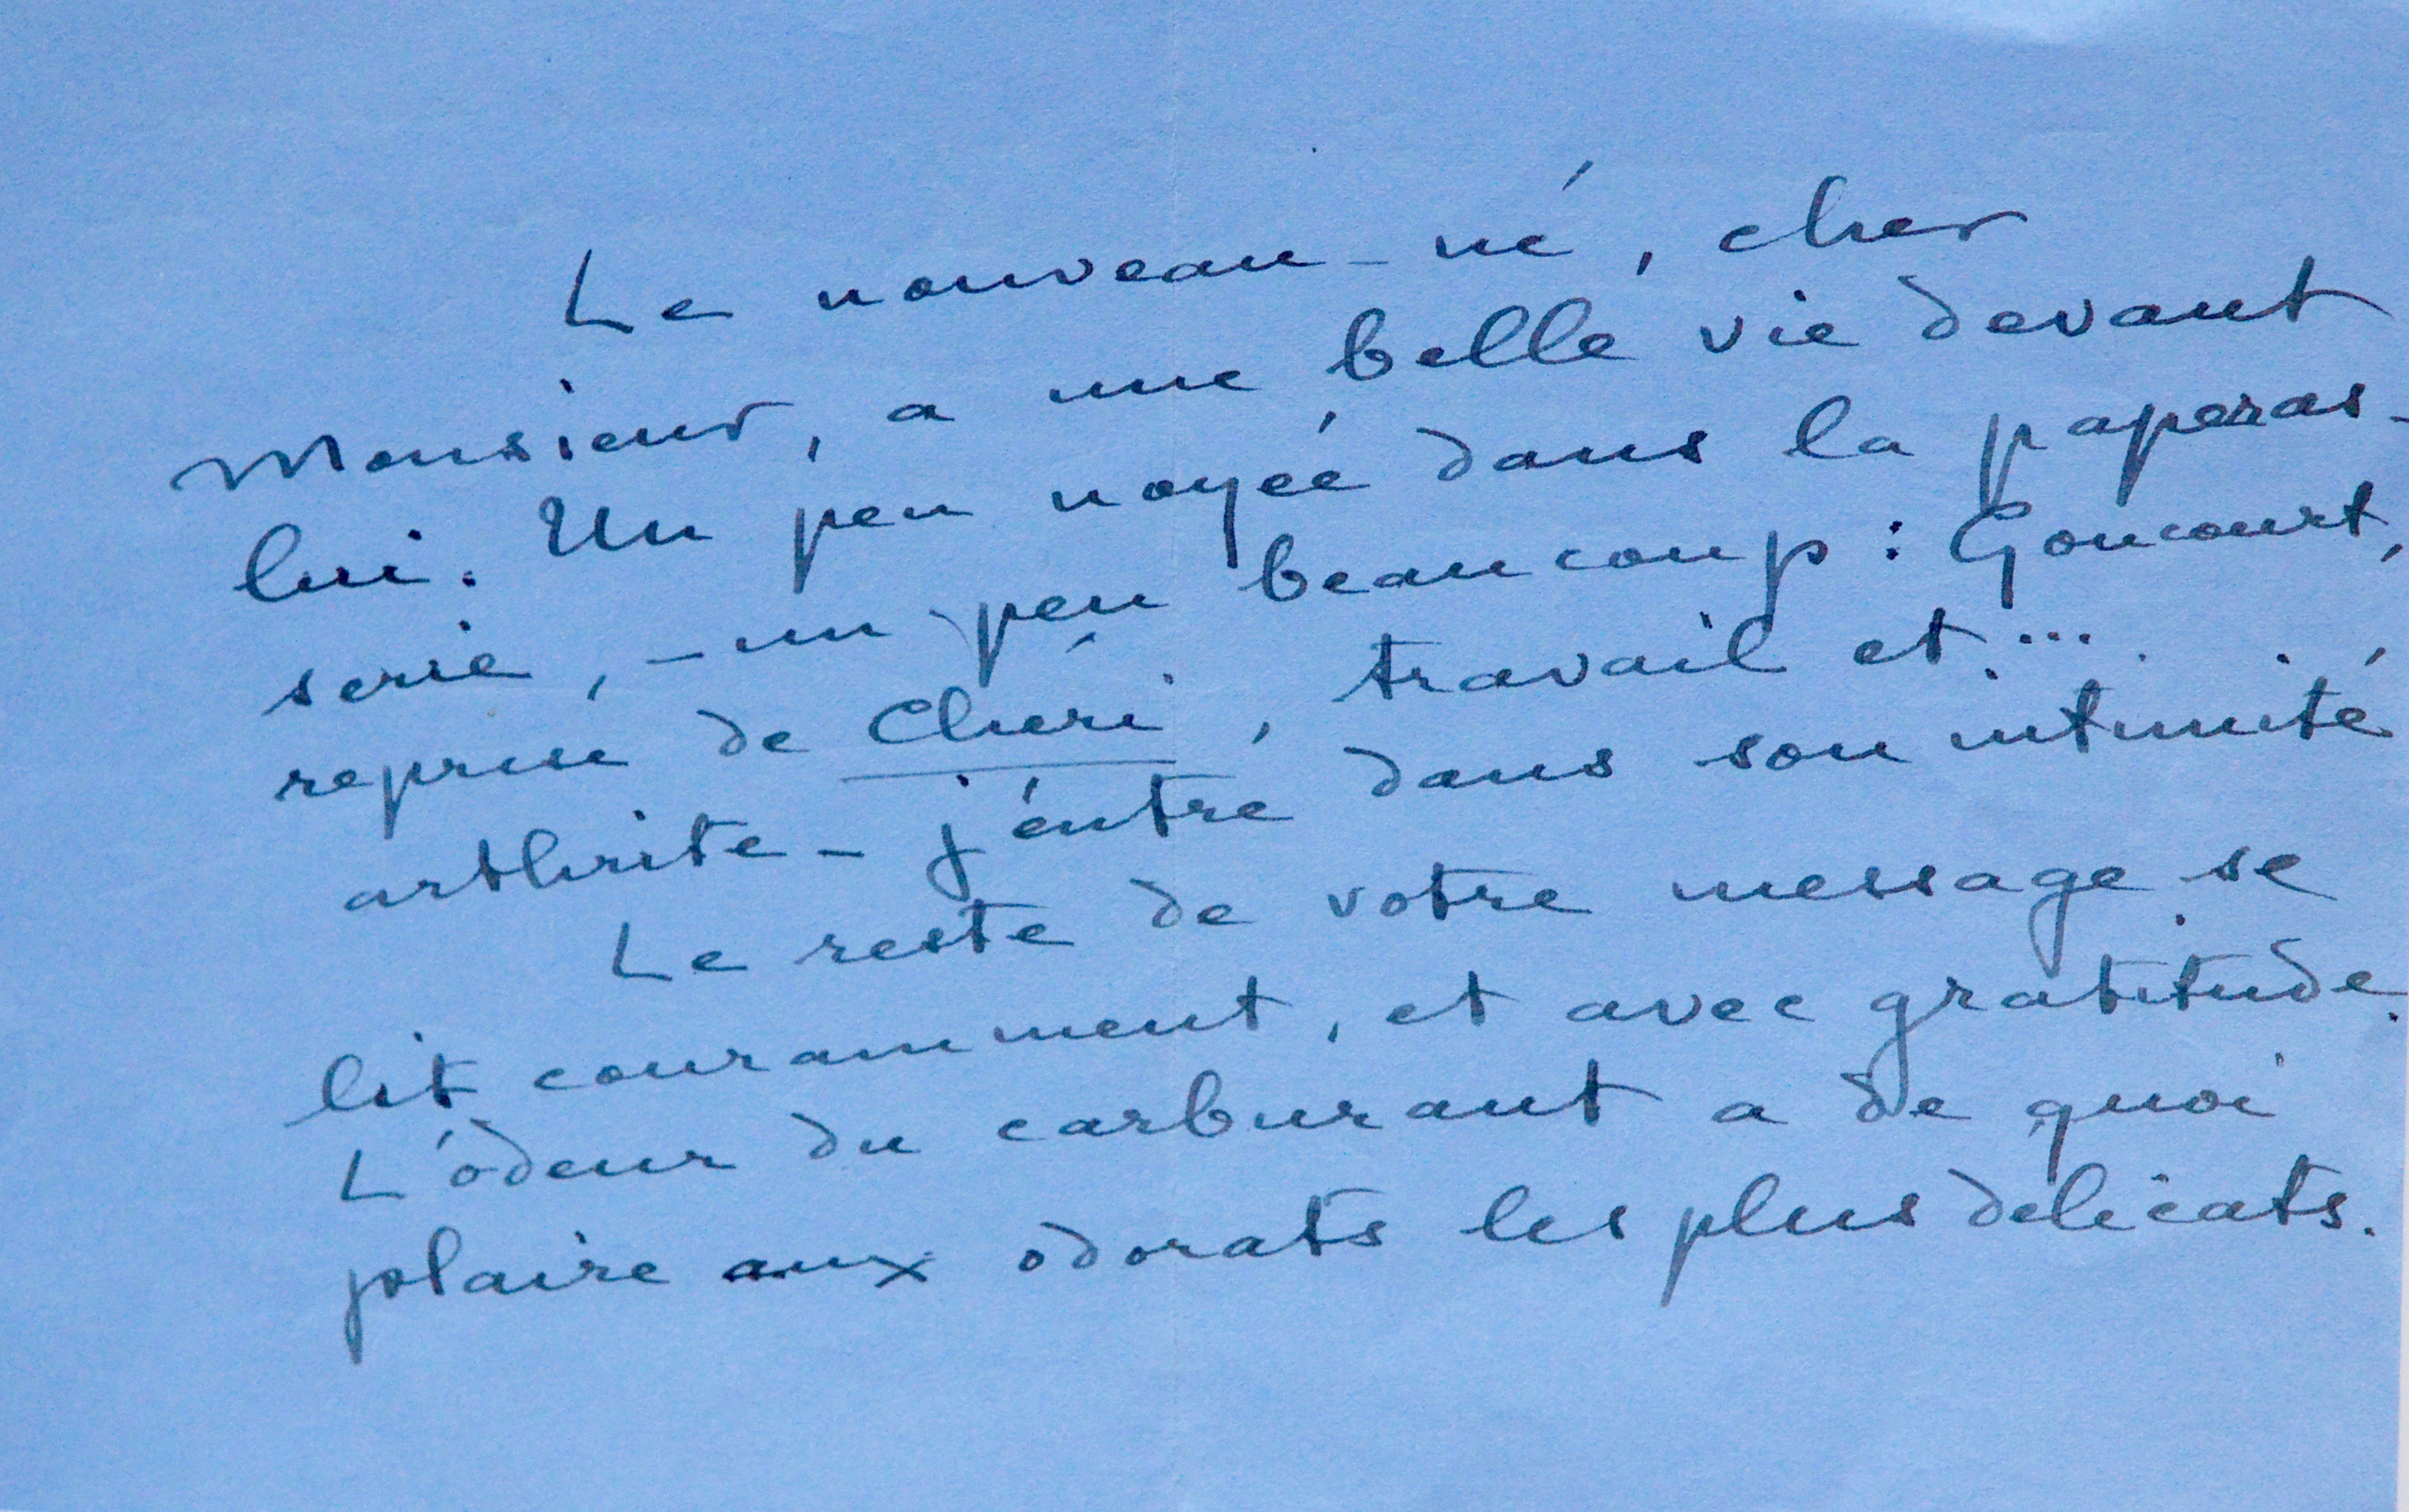 Le nouveau-né, cher
Monsieur, a une belle vie devant
lui. Un peu noyée dans la paperas-
serie, – un peu beaucoup : Goncourt,
reprise de Chéri, travail et....
arthrite – j'entre dans son intimité
Le reste de votre message se
lit couramment, et avec gratitude.
L'odeur du carburant a de quoi
plaire aux odorats les plus délicats.